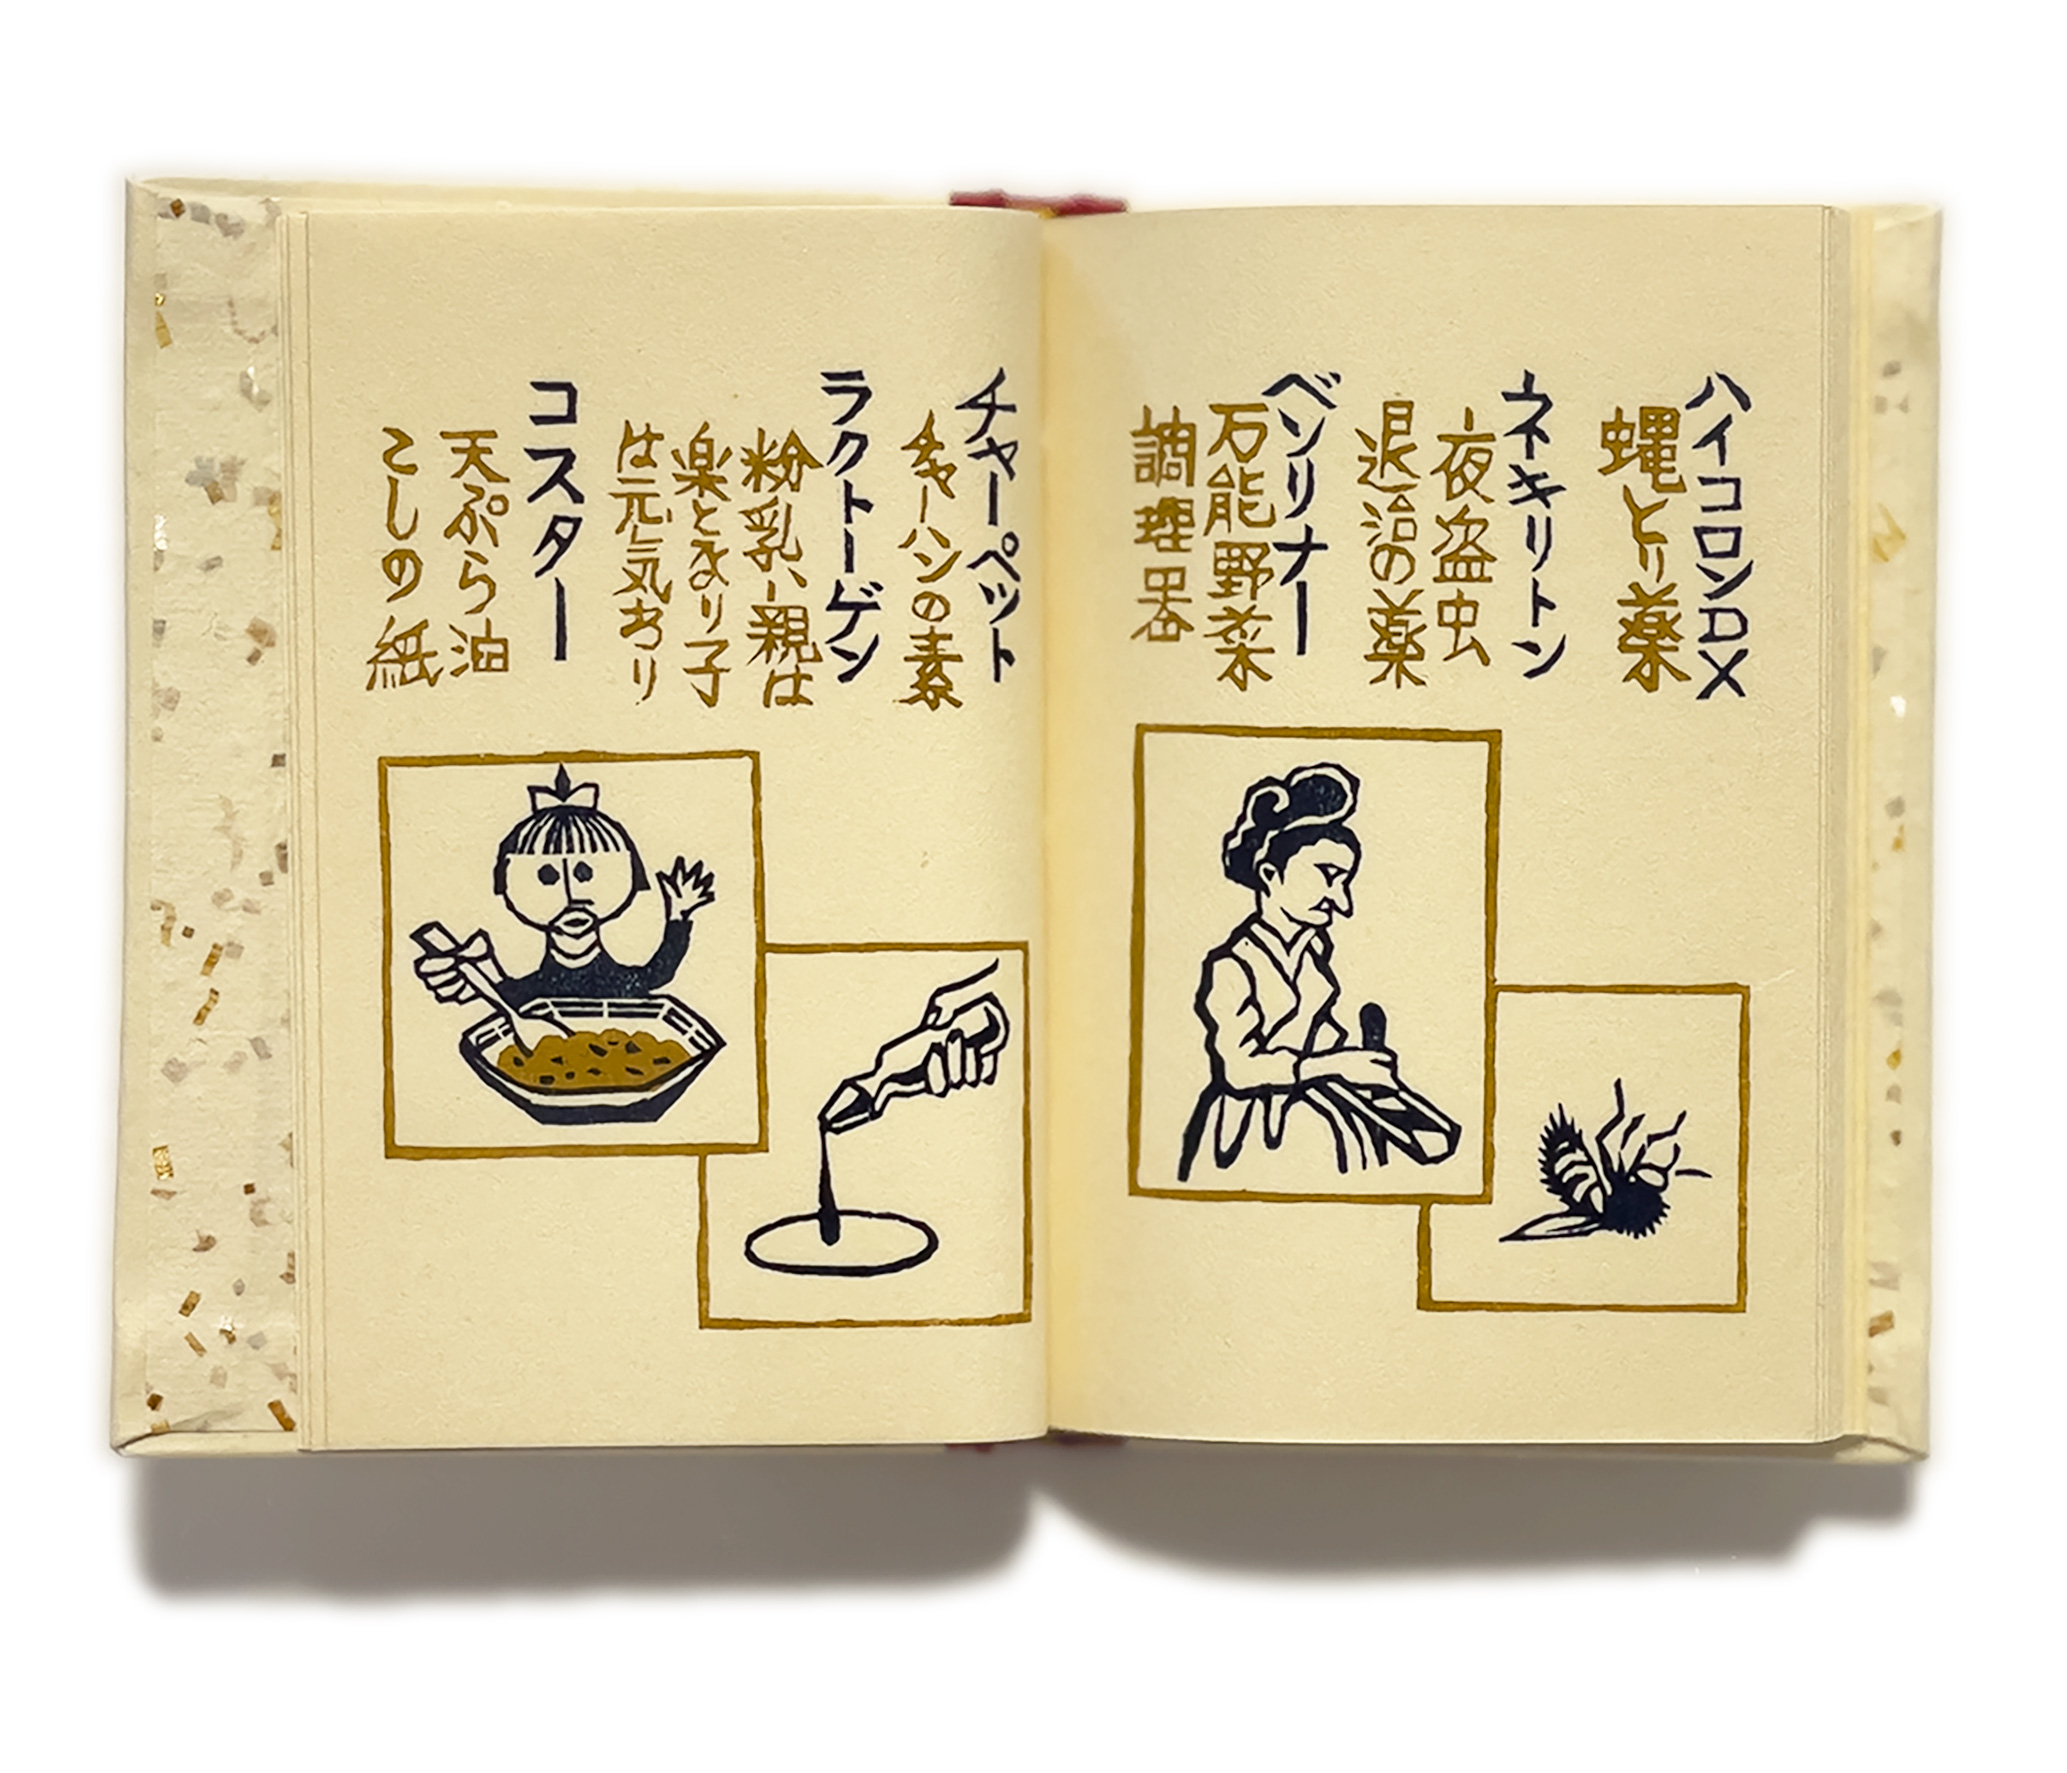 ハイコロンDX
蝿とり薬
ネキリトン
夜盗虫
退治の薬
ベソリナー
万能野菜
調理器
チャーペット
チャーハンの素
ラクトーゲン
粉乳、親は
楽となり子
は元気あり
コスター
天ぷら油
こしの紙